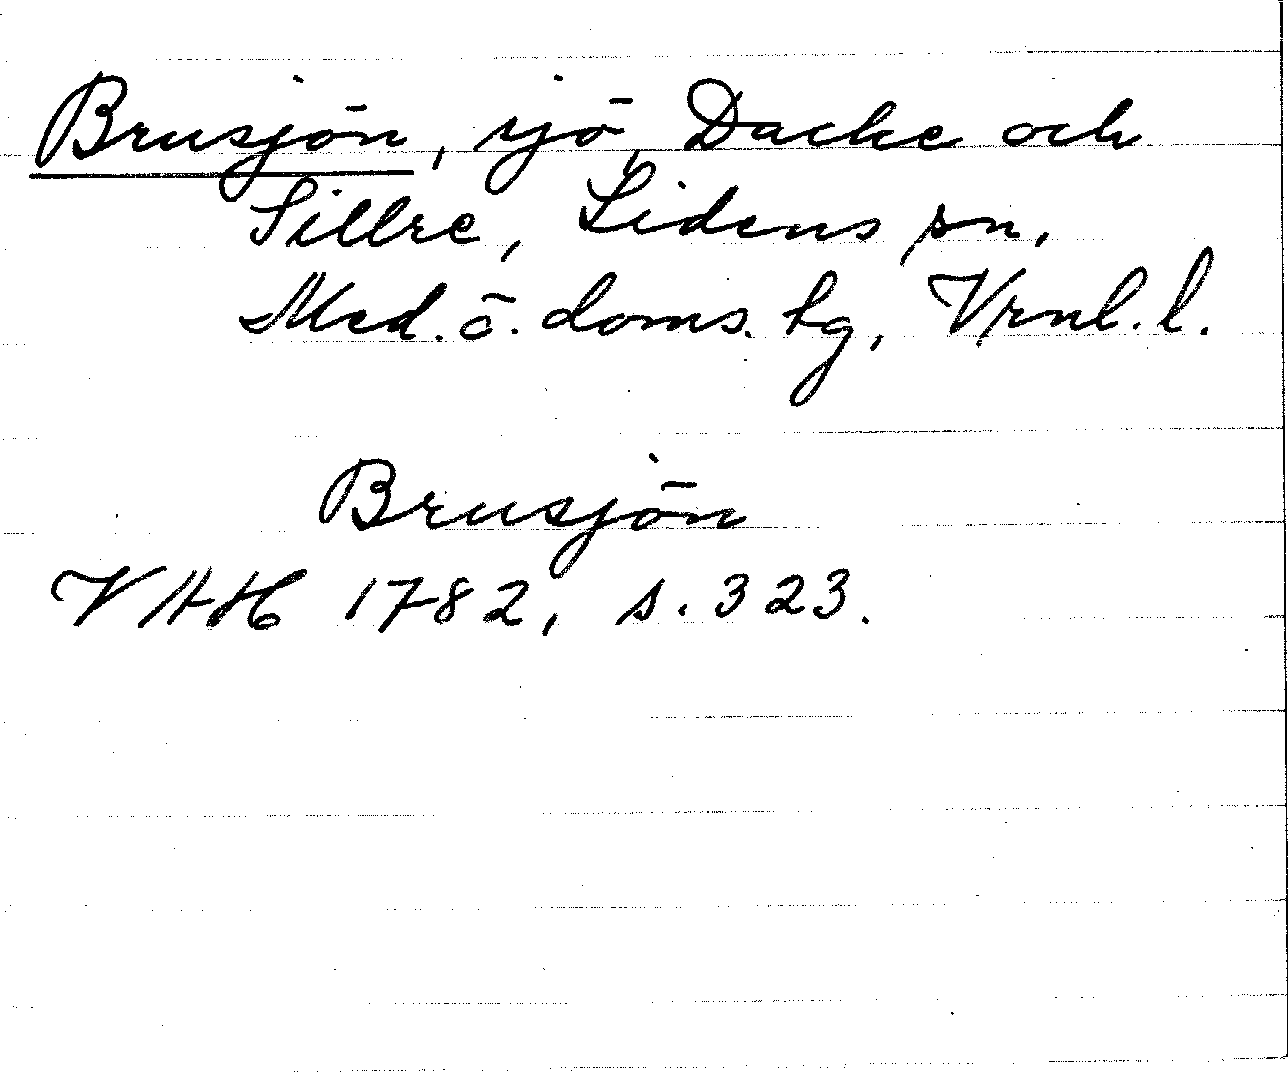 Brusjön, sjö, Dacke och
Sillre, Lidens sn,
Med. ö. doms. hg, Vrnl. l.
Brusjön
VHAH 1782, s. 323.